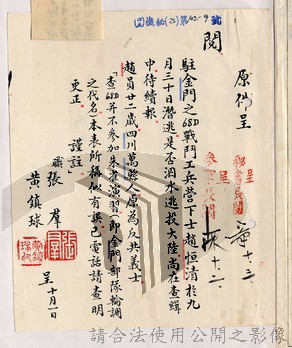 閱
原件呈
駐金門之68D戰鬥工兵營下士趙恒清於九
月三十日潛逃是否泅水逃投大陸尚在查緝
中待續報
趙員廿二歲四川萬縣人原為反共義士
查68D并不參加朱雀演習(即金門部隊輪調
之代名)本表所稱似有誤已電話請查明
更正
謹註
職 張羣
黃鎮球
呈 十月一日
請合法使用公開之影像